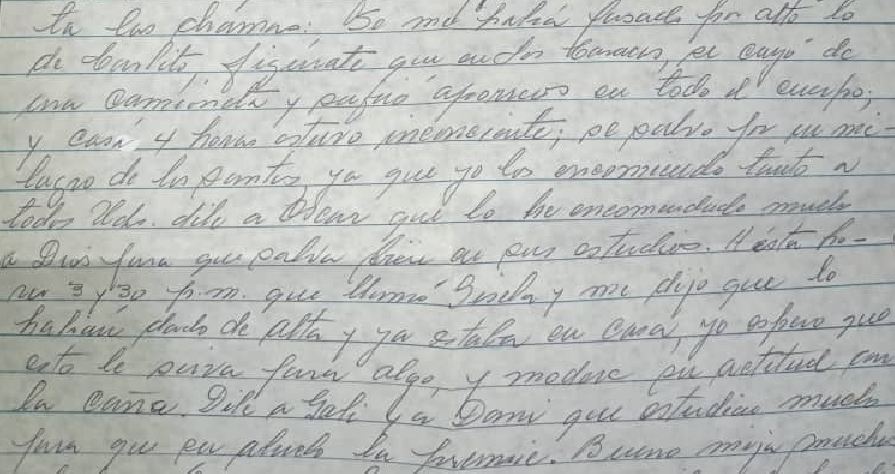 ta las chamas. Se me había pasado por alto lo
de Carlito, figurate que andon tomaun, se cayo de
una camioneta y sufrio aporreos en todo el cuerpo;
y casi 4 horas estuvo inconsciente; se salvo por un mi
lagro de los santos, ya que yo los encomiendo tanto a
todos Uds. dile a Oscar que lo he encomendado mucho
a Dios para que salva bien en sus estudios. Hasta ho-
ra 3 y 30 p.m. que llamó Gisela y me dijo que lo
habían dado de alta y ya estaba en casa, yo espero que
esto le sirva para algo, y modere su actitud con
la caña. Dile a Gabi y a Dani que estudien mucho
para que su abuela la premie. Bueno mija mucho